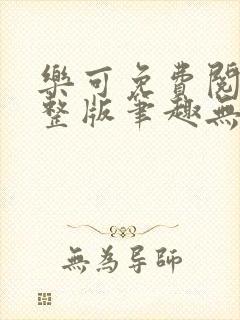 樂可免費閱
整版筆趣無
無為导師